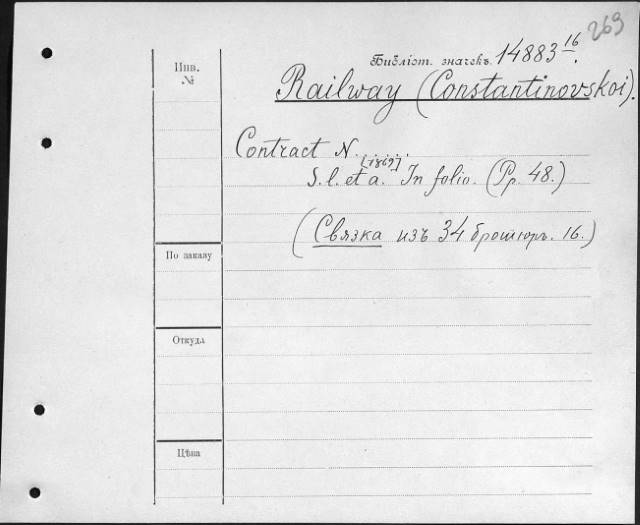 269
Библіот. значекъ 14883 16.
Инв. №
Railway (Constantinovskoi).
Contract N. . . . .
[1869]
S. l. et a. In folio. (Pp. 48.)
(Связка изъ 34 брошюръ. 16.)
По заказу
Откуда
Цѣна